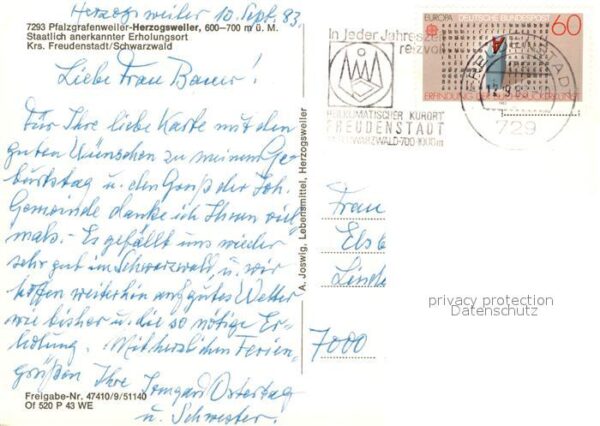 Herzogsweiler 10. Sept. 83
7293 Pfalzgrafenweiler-Herzogsweiler, 600–700 m ü. M.
Staatlich anerkannter Erholungsort
Krs. Freudenstadt/Schwarzwald
Liebe Frau Bauer!
Für Ihre liebe Karte mit den
guten Wünschen zu meinem Ge-
burtstag u. den Gruß der Joh.
Gemeinde danke ich Ihnen viel
mals.- Es gefällt uns wieder
sehr gut im Schwarzwald, u. wir
hoffen weiterhin auf gutes Wetter
wie bisher u. die so nötige Er-
holung. Mit herzlichen Ferien-
grüßen Ihre Irmgard Ostertag
u. Schwester.
Freigabe-Nr. 47410/9/51140
Of 520 P 43 WE
A. Joswig, Lebensmittel, Herzogsweiler
In jeder Jahres
reizvol
HEILKLIMATISCHER KURORT
FREUDENSTADT
SCHWARZWALD-700-1000m
EUROPA DEUTSCHE BUNDESPOST
60
A
ERFINDUNG DES BUCHDRUCKS
FREUDENSTADT
729
Frau
Els
Linde
7000
privacy protection
Datenschutz